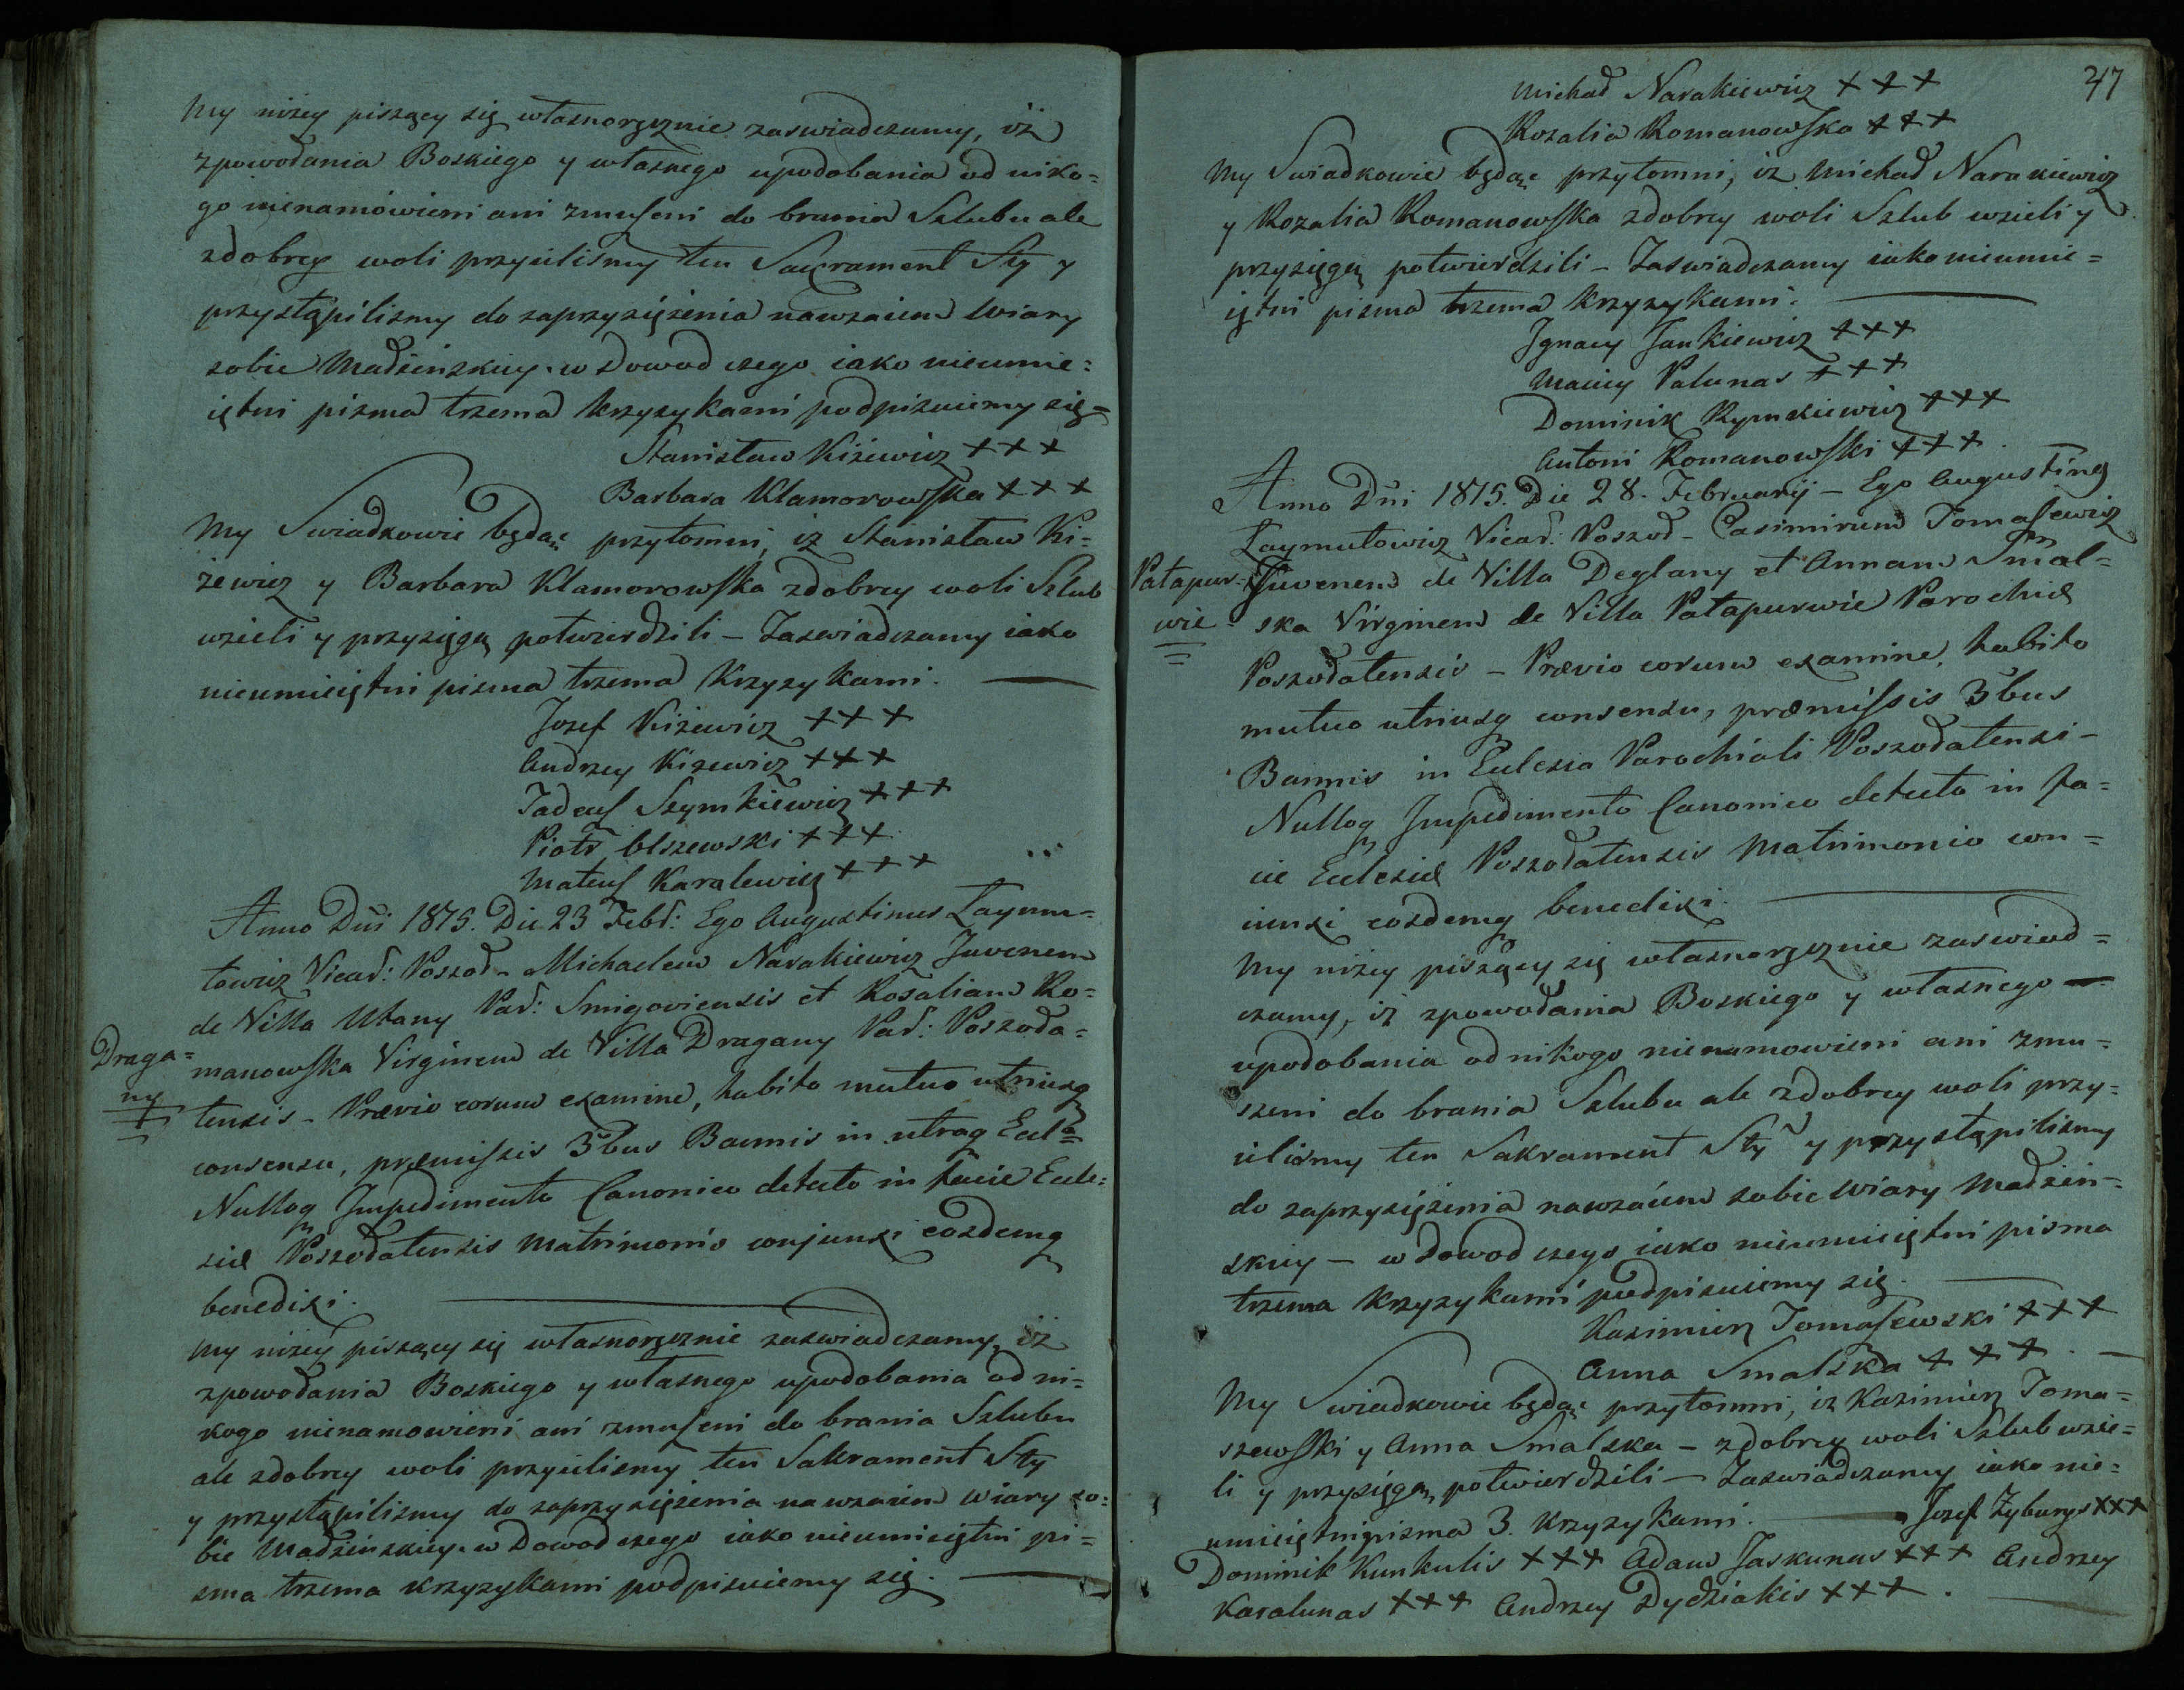 My niżey piszący się własnoręcznie zaswiadczamy, iż
zpowołania Boskiego y własnego upodobania od niko=
go nienamówieni ani zmuszeni do brania Szlubu ale
zdobrey woli przyieliśmy ten Sacrament Sty y
przystąpilismy do zaprzysiężenia nawzaiem Wiary
sobie Małżeńskiey. w Dowod czego iako nieumie=
iętni pisma trzema krzyzykami podpisuiemy się=
Stanisław Kiżewicz +++
Barbara Klamorowska +++
My Swiadkowie będąc przytomni, iż Stanisław Ki=
żewicz y Barbara Klamorowska zdobrey woli Szlub
wzieli y przysięgą potwierdzili - Zaswiadczamy iako
nieumieiętni pisma trzema Krzyzykami.
Jozef Kiżewicz +++
Andrzey Kizewicz +++
Tadeusz Szymkiewicz +++
Piotr Olszewski +++
Mateusz Karalewicz +++
Anno Dni 1815. Die 23 Febr: Ego Augustinus Laymu=
towicz Vicar: Poszod - Michaelem Narakiewicz Juvenem
de Villa Utany Par: Smigoviensis et Rosaliam Ro=
Draga=
ny
manowska Virginem de Villa Dragany Par: Poszoda=
tensis - Prævio eorum examine, habito mutuo utriusq
consensu, præmissis 3bus Bannis in utraq Eccla=
Nulloq Impedimento Canonico detecto in facie Eccle=
siæ Poszodatensis Matrimonio conjunxi eosdemq
benedixi.
My niżey piszący się własnoręcznie zaswiadczamy, iż
zpowołania Boskiego y własnego upodobania od ni=
kogo nienamowieni ani zmuszeni do brania Szlubu
ale zdobrey woli przyielismy ten Sakrament Sty
y przystąpilismy do zaprzysiężenia nawzaiem Wiary so=
bie Małżeńskiey. w Dowod czego iako nieumieiętni pi=
sma trzema krzyzykami podpisuiemy się.
47
Michał Narakiewicz +++
Rozalia Romanowska +++
My Swiadkowie będąc przytomni, iz Michał Narakiewicz
y Rozalia Romanowska zdobrey woli Szlub wzieli y
przysięgą potwierdzili - Zaswiadczamy iako nieumie=
iętni pisma trzema krzyzykami.
Jgnacy Jankiewicz +++
Maciey Palunas +++
Dominik Rymkiewicz +++
Antoni Romanowski +++
Anno Dni 1815. Die 28. Februarij - Ego Augustinq
Laymutowicz Vicar: Poszod - Casimirum Tomasewicz
Patapur=
wie
Juvenem de Villa Deglany et Annam Smal=
ska Virginem de Villa Patapurwie Parochiæ
Poszodatensis - Prævio eorum examine, habito
mutuo utriusq consensu, præmissis 3bus
Bannis in Eclesia Parochiali Poszodatensi -
Nulloq Impedimento Canonico detecto in fa=
cie Eclesiæ Poszodatensis Matrimonio con=
iunxi eosdemq benedixi.
My nizey piszący się własnoręcznie zaswiad=
czamy, iż zpowołania Boskiego y własnego
upodobania od nikogo nienamowieni ani zmu=
szeni do brania Szlubu ale zdobrey woli przy=
ielismy ten Sakrament Sty y przystąpilismy
do zaprzysiężenia nawzaiem sobie Wiary Małżeń=
skiey - w Dowod czego iako nieumieiętni pisma
trzema krzyzykami podpisuiemy się.
Kazimierz Tomasewski +++
Anna Smalska +++
My Swiadkowie będąc przytomni, iz Kazimierz Toma=
szewski y Anna Smalska - zdobrey woli Szlub wzie=
li y przysięgą potwierdzili - Zaswiadczamy iako nie=
umieiętni pisma 3. krzyzykami. Jozef Zyburys +++
Dominik Kunkulis +++ Adam Jaskunas +++ Andrzey
Karalunas +++ Andrzey Dydziakis +++